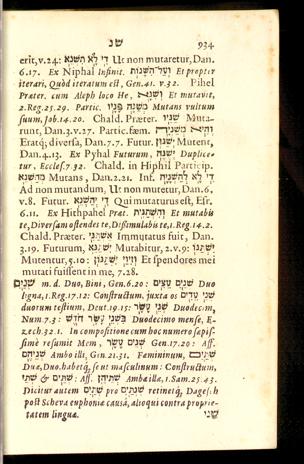 שנ 934
erit, v.24: דִּי לָא תִשְׁנֵא Ut non mutaretur, Dan.
6.17. Ex Niphal Infinit. וְעַל־הִשָּׁנוֹת Et propter
iterari, Quòd iteratum est, Gen. 41. v.32. Pihel
Præter. cum Aleph loco He, וְשִׁנָּא Et mutavit,
2. Reg. 25.29. Partic. מְשַׁנֶּה פָּנָיו Mutans vultum
suum, Job. 14.20. Chald. Præter. שַׁנִּיו Muta-
runt, Dan. 3. v.27. Partic. fæm.
Erat diversa, Dan. 7.7. Futur. Mutent,
Dan. 4.13. Ex Pyhal Futurum, Duplice-
tur, Eccles. 7 32. Chald. in Hiphil Particip.
מְהַשְׁנֵא Mutans, Dan. 2.21. Inf. דִּי לָא לְהַשְׁנָיָה
Ad non mutandum, Ut non mutetur, Dan. 6.
v.8. Futur. דִּי יְהַשְׁנֵא Qui mutaturus est, Esr.
6.11. Ex Hithpahel Præt. וְהִשְׁתַּנִּית Et mutabis
te, Diversam ostendes te, Dissimulabis te, 1. Reg. 14.2.
Chald. Præter. Immutatus fuit, Dan.
3.19. Futurum, Mutabitur, 2. v.9:
Mutentur, 5.10: Et splendores mei
mutati fuissent in me, 7.28.
שְׁנַיִם m. d. Duo, Bini, Gen. 6.20: שְׁנַיִם עֵצִים Duo
ligna, 1. Reg. 17.12: Constructum, juxta os שְׁנֵי עֵדִים
duorum testium, Deut. 19.15: שְׁנֵי עָשָׂר Duodecim,
Num. 7.3: בִּשְׁנֵי עָשָׂר חֹדֶשׁ Duodecimo mense, E-
zech. 32.1. In compositione cum hoc numero sæpis-
simè resumit Mem, שְׁנֵים עָשָׂר Gen. 17.20: Aff.
שְׁנֵיהֶם Ambo illi, Gen. 21.31. Femininum, שְׁתַּיִם
Duæ, Duo, habetq́; se ut masculinum: Constructum,
שְׁתֵּי & שְׁתֵּים: Aff. שְׁתֵּיהֶן Ambæ illæ, 1. Sam. 25.43.
Dicitur autem שְׁתַּיִם pro שְׁנְתַּיִם retinetq́; Dagesch
post Scheva euphoniæ causâ, alioqui contra proprie-
tatem linguæ.
שֵׁנִי